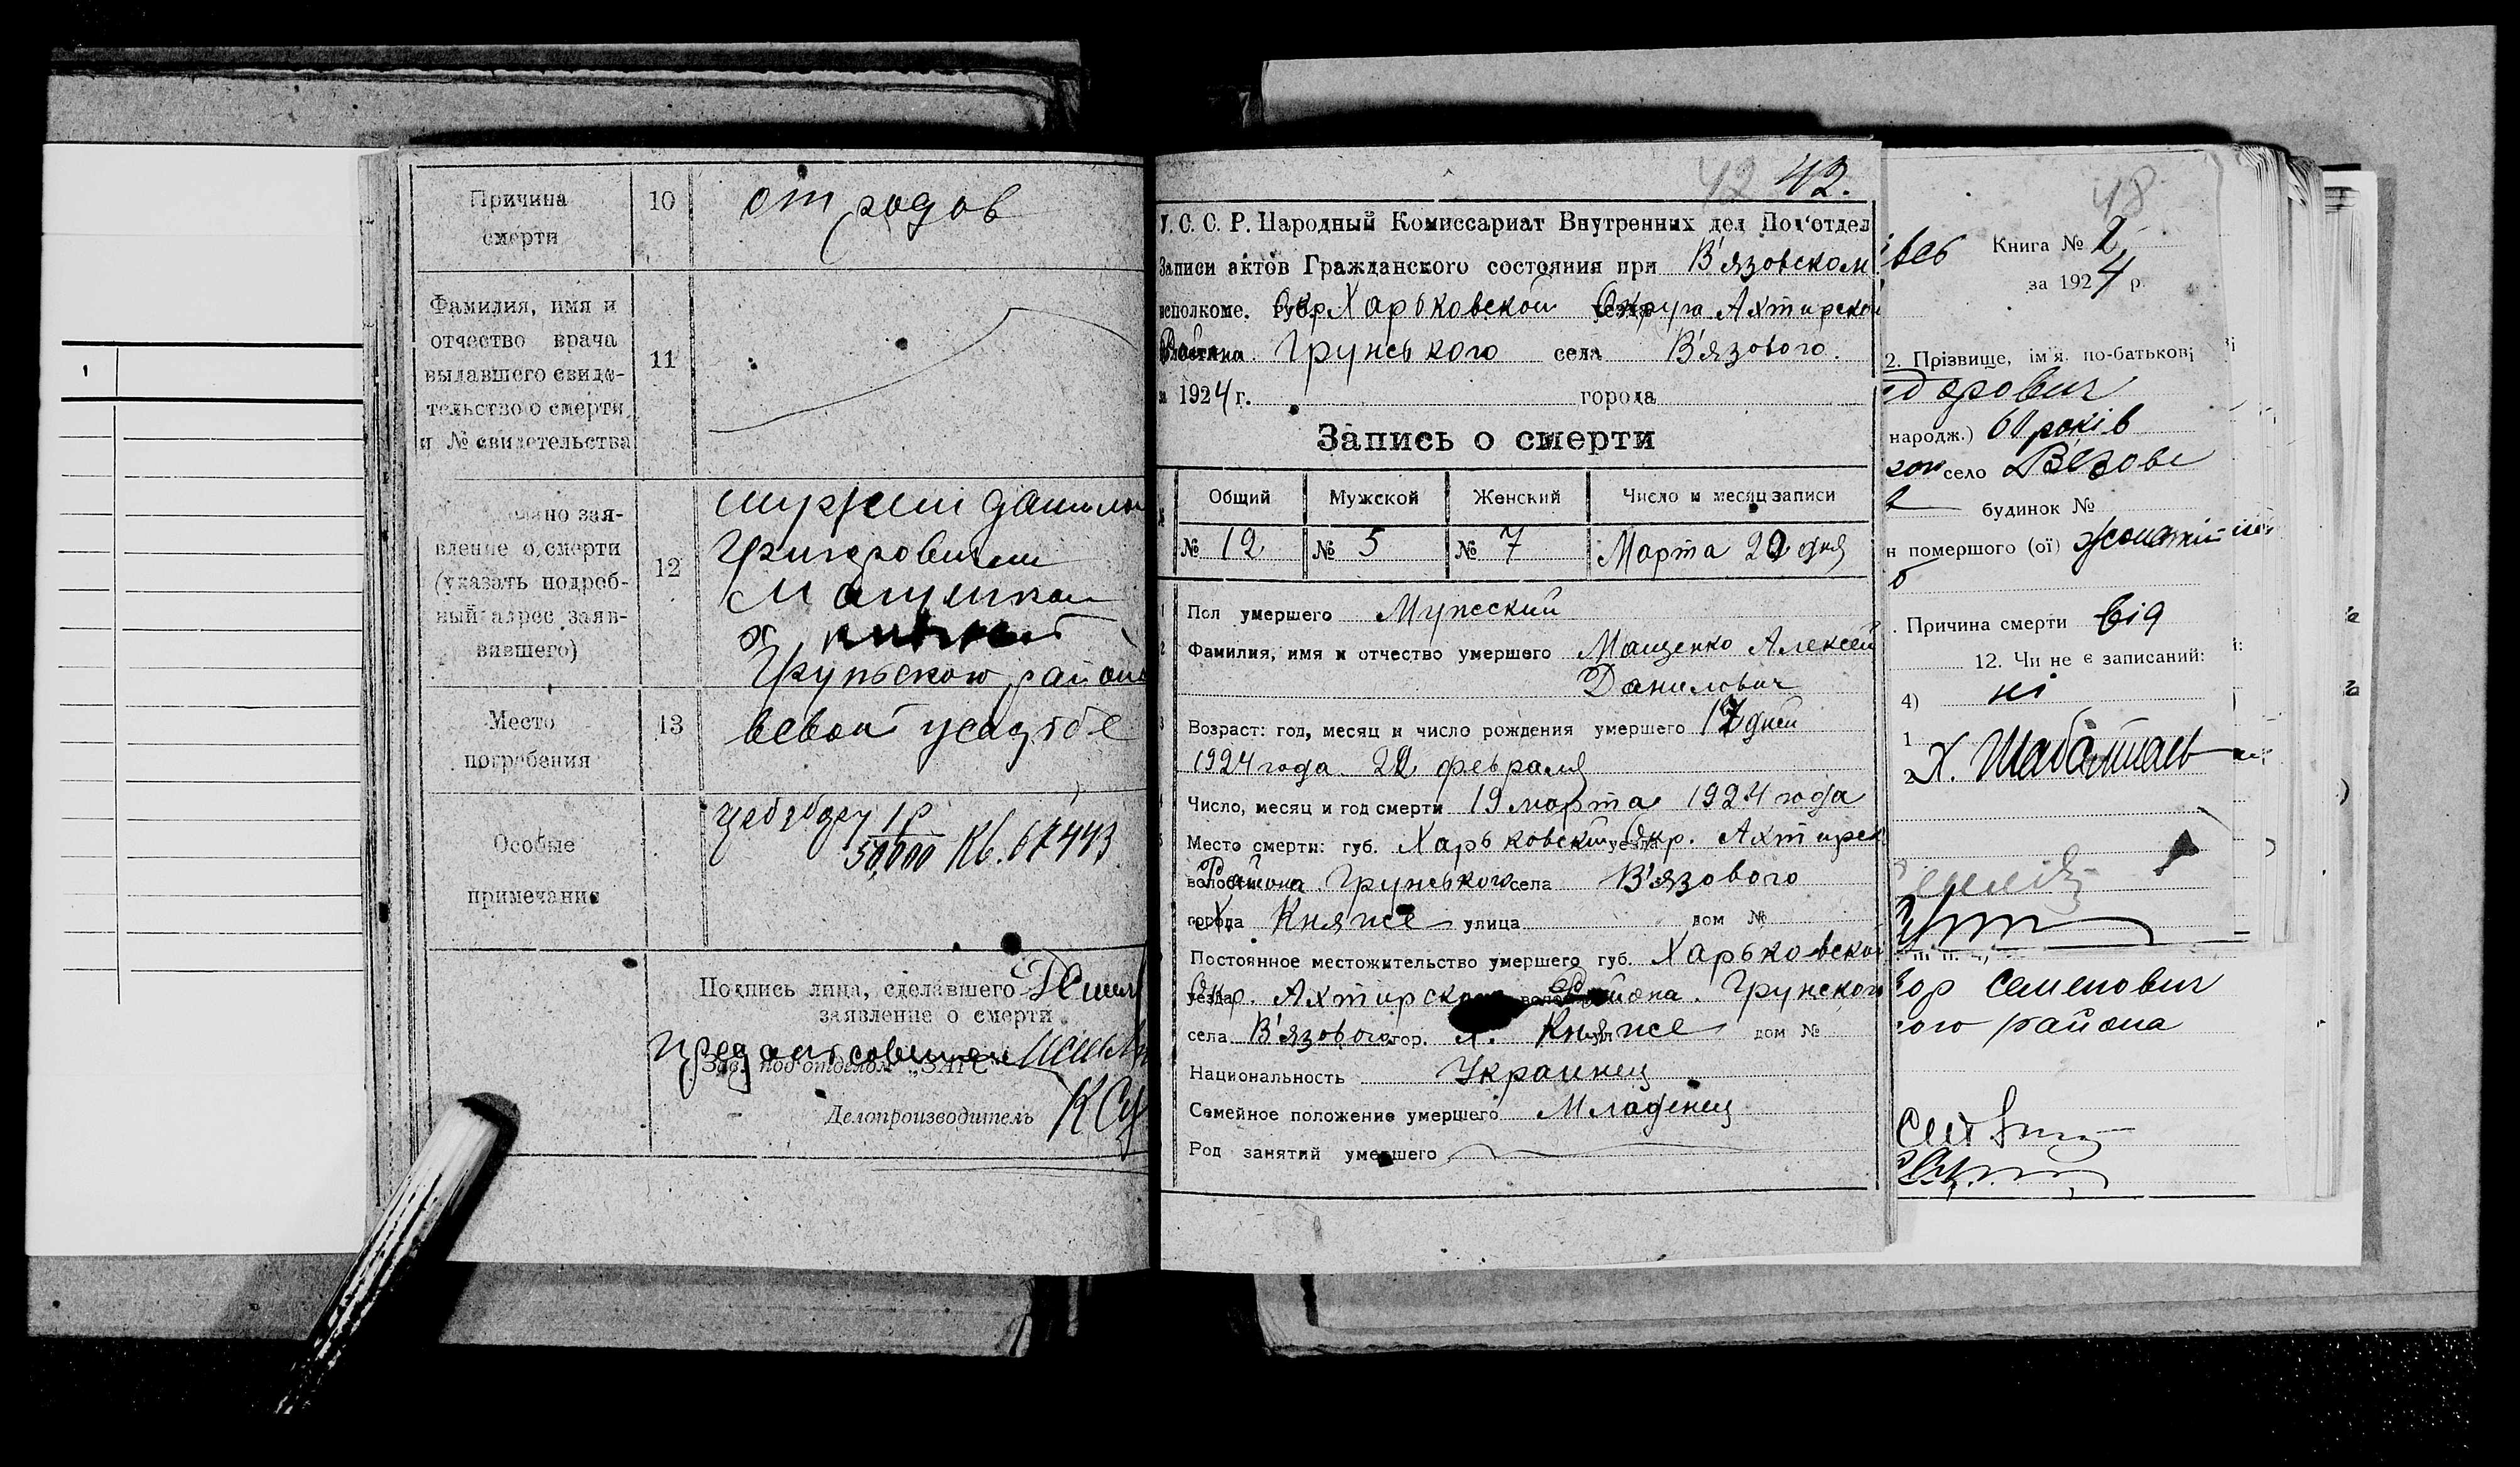 Причина
смерти
10
от родов
Фамилия, имя и
отчество врача
выдавшего свиде-
тельство о смерти
и № свидетельства
11
зая-
вление о смерти
(указать подроб-
ный адрес заяв-
вившего)
12
Григоровичем
х.
Грунського район
Место
погребения
13
всвой усадтбе
Особые
примечание
1р
50,000 Кв. 67443
Подпись лица, сделавшего
заявление о смерти
Зав. под отделом „ЗАГС“
Делопроизводитель
42 42.
У. С. С. Р. Народный Комиссариат Внутренних дел Под‘отдел
Записи актов Гражданского состояния при В'язовском
исполкоме. Окр. Харьковской Округа Ахтирской
Района Грунського села В'язового.
за 1924 г. города
Запись о смерти
Общий Мужской Женский Число и месяц записи
№ 12 № 5 № 7 Марта 20 дня
1 Пол умершего Мужеский
2 Фамилия, имя и отчество умершего Мащенко Алексей
Данилович
3 Возраст: год, месяц и число рождения умершего 17 дней
1924 года 22 февраля
4 Число, месяц и год смерти 19 марта 1924 года
5 Место смерти: губ. Харьковский Окр. Ахтирск.
Района Грунського села В'язового
города Х. Княже улица дом №
Постоянное местожительство умершего губ. Харьковской
Окр. Ахтирского Района. Грунского
села В'язового гор. х. Княже дом №
Национальность Украинец
Семейное положение умершего Младенец
Род занятий умершего
48
Книга № 2
за 1924 р.
2. Прізвище, ім'я, по-батькові
народж.) 60 років
село Вязове
будинок №
н помершого (ої)
Причина смерти від
12. Чи не є записаний:
4) ні
1
2 Х.
Семенович
ого района